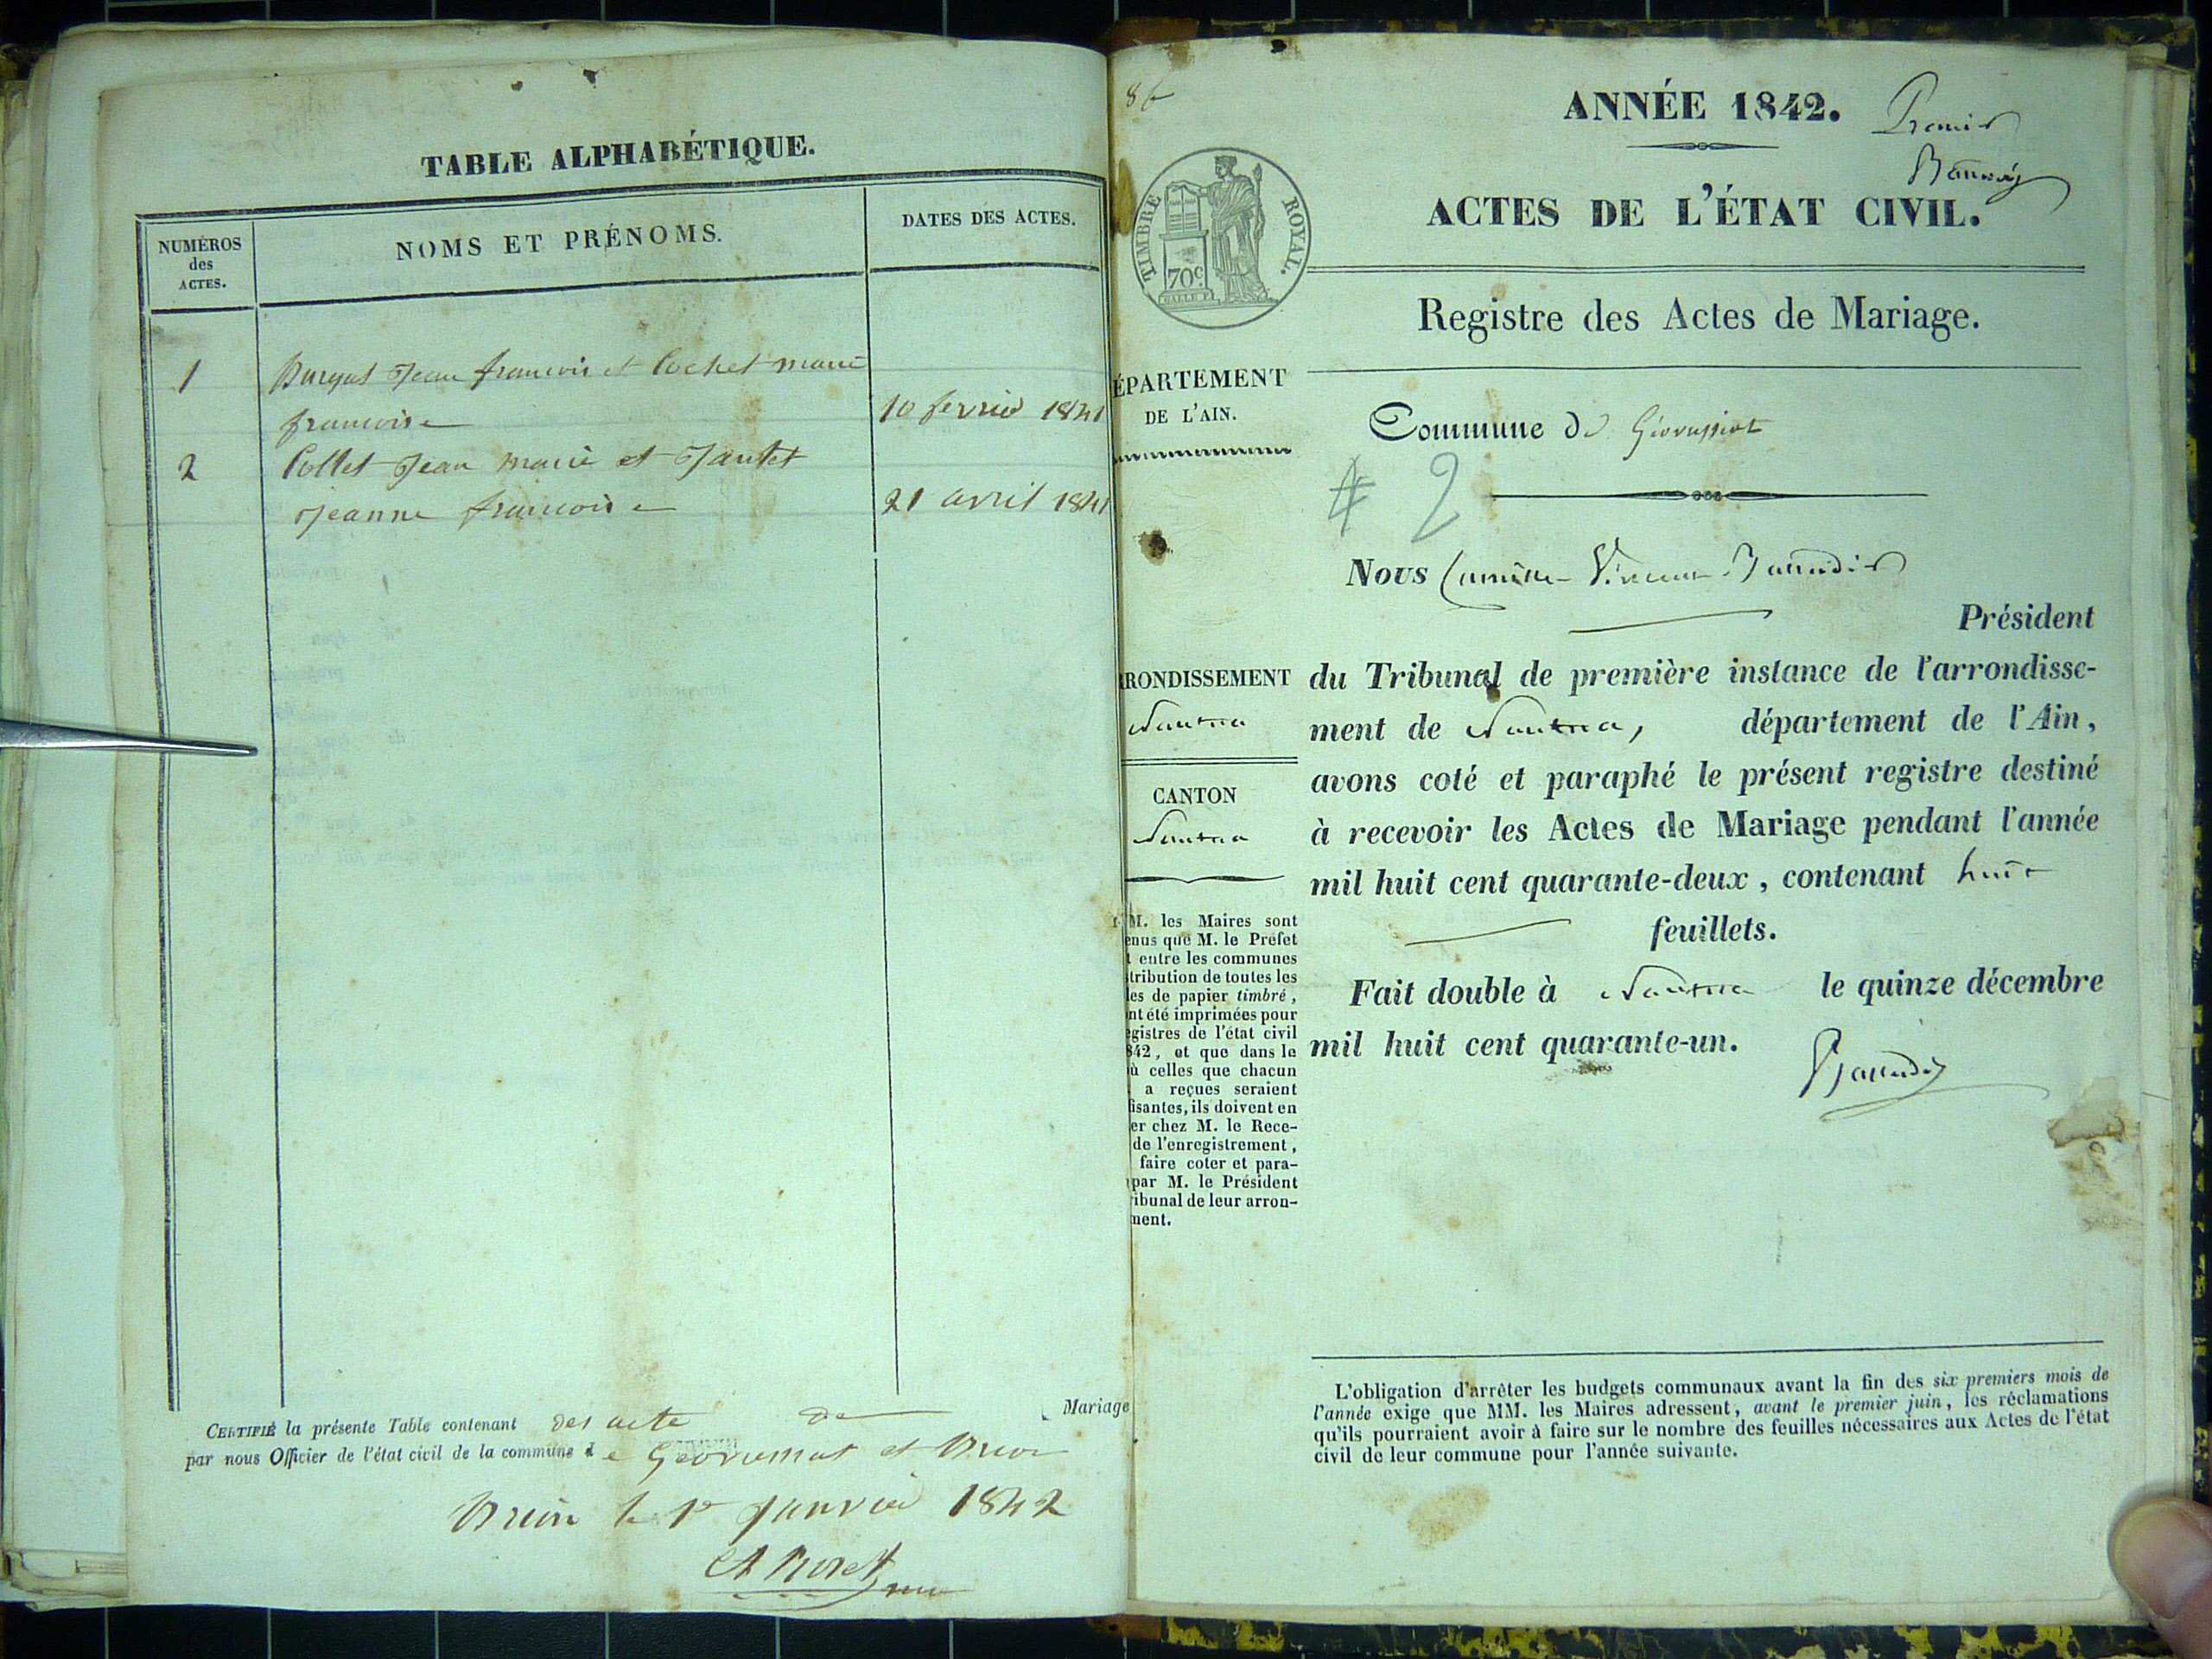 TABLE ALPHABÉTIQUE.
NUMÉROS
des
ACTES.
NOMS ET PRÉNOMS.
DATES DES ACTES.
1
Jean francois et Cochet marie
francoise
10 fevrier 1841
2
Collet Jean marie et Jantet
Jeanne francoise
21 avril 1841
CERTIFIÉ la présente Table contenant des acte de Mariage
par nous Officier de l'état civil de la commune de Géovresset et Brion
Brion le 1er Janvier 1842
86
ANNÉE 1842.
Premier
ACTES DE L'ÉTAT CIVIL.
TIMBRE ROYAL.
70c
Registre des Actes de Mariage.
ÉPARTEMENT
DE L'AIN.
Commune de Géovressiat
# 2
Nous Camille Vincent
Président
RONDISSEMENT
Nantua
du Tribunal de première instance de l'arrondisse-
ment de Nantua, département de l'Ain,
avons coté et paraphé le présent registre destiné
à recevoir les Actes de Mariage pendant l'année
mil huit cent quarante-deux, contenant huit
feuillets.
Fait double à Nantua le quinze décembre
mil huit cent quarante-un.
CANTON
Nantua
M. les Maires sont
enus que M. le Préfet
t entre les communes
tribution de toutes les
les de papier timbré,
nt été imprimées pour
egistres de l'état civil
842, et que dans le
ù celles que chacun
a reçues seraient
fisantes, ils doivent en
er chez M. le Rece-
de l'enregistrement,
faire coter et para-
par M. le Président
ribunal de leur arron-
ment.
L'obligation d'arrêter les budgets communaux avant la fin des six premiers mois de
l'année exige que MM. les Maires adressent, avant le premier juin, les réclamations
qu'ils pourraient avoir à faire sur le nombre des feuilles nécessaires aux Actes de l'état
civil de leur commune pour l'année suivante.